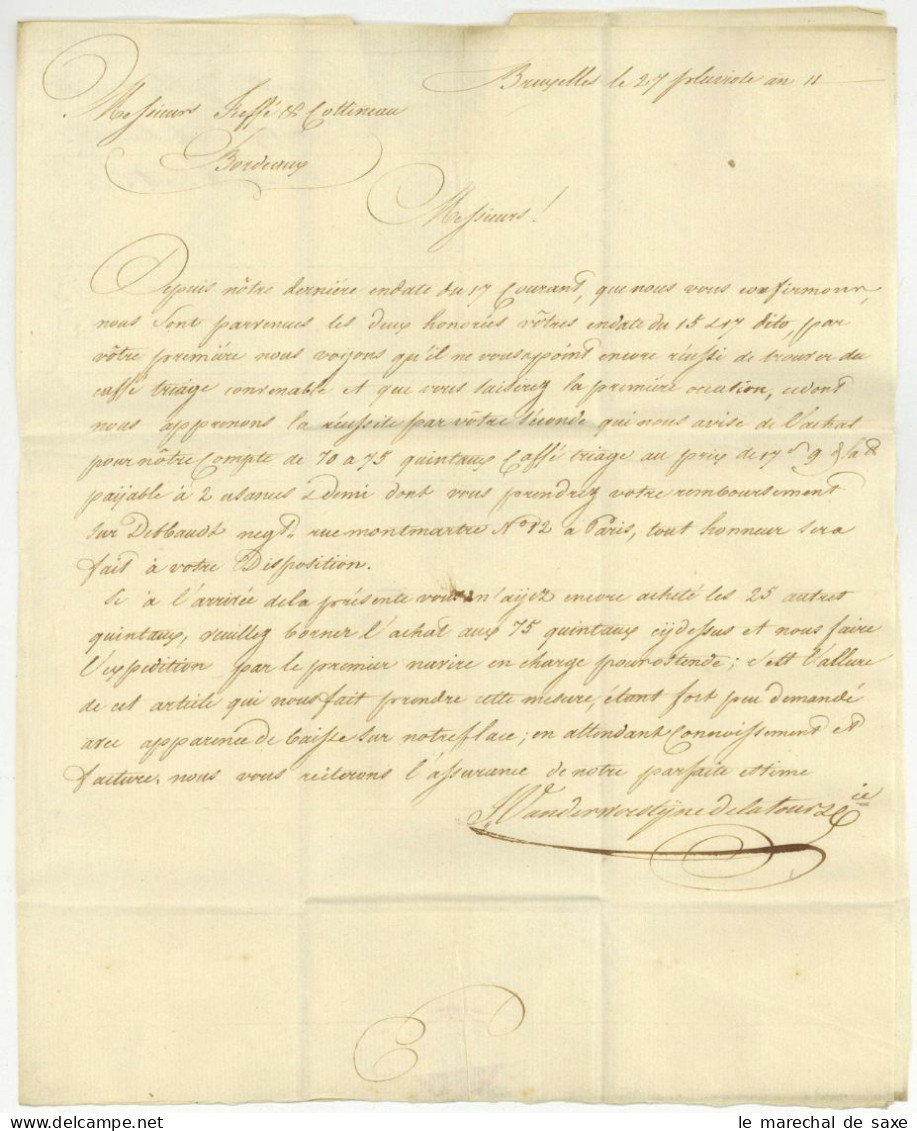 Bruxelles le 27 pluviose an 11
Messieurs Feffé & Cottineau
Bordeaux
Messieurs!
Depuis nôtre derniére endate du 17 Courant, que nous vous confirmons,
nous sont parvenues les deux honorées vôtres endate du 15 & 17 dito, par
vôtre premiére nous voyons qu'il ne vous a point encore réussi de trouver du
caffé triage convenable et que vous saiserez la premiére ocation, et dont
nous apprenons la réussite par vôtre séconde qui nous avise de l'achat
pour nôtre Compte de 70 a 75 quintaux Caffé triage au prix de 17 s 9 d la lb
païjable à 2 usances & demi dont vous prendrez votre remboursement
sur Debbaudt negt. rue montmartre No 12 a Paris, tout honneur sera
fait à votre Disposition.
Si à l'arrivée dela présente vous n'aijez encore acheté les 25 autres
quintaux, veuillez borner l'achat aux 75 quintaux cijdessus et nous faire
l'expedition par le premier navire en charge pour ostende; c'est l'allure
de cet article qui nous fait prendre cette mesure, étant fort peu demandé
avec apparence de baisse sur notre place; en attendant Connoissement et
facture, nous vous reiterons l'assurance de notre parfaite estime
Delatour & Cie
le marechal de saxe